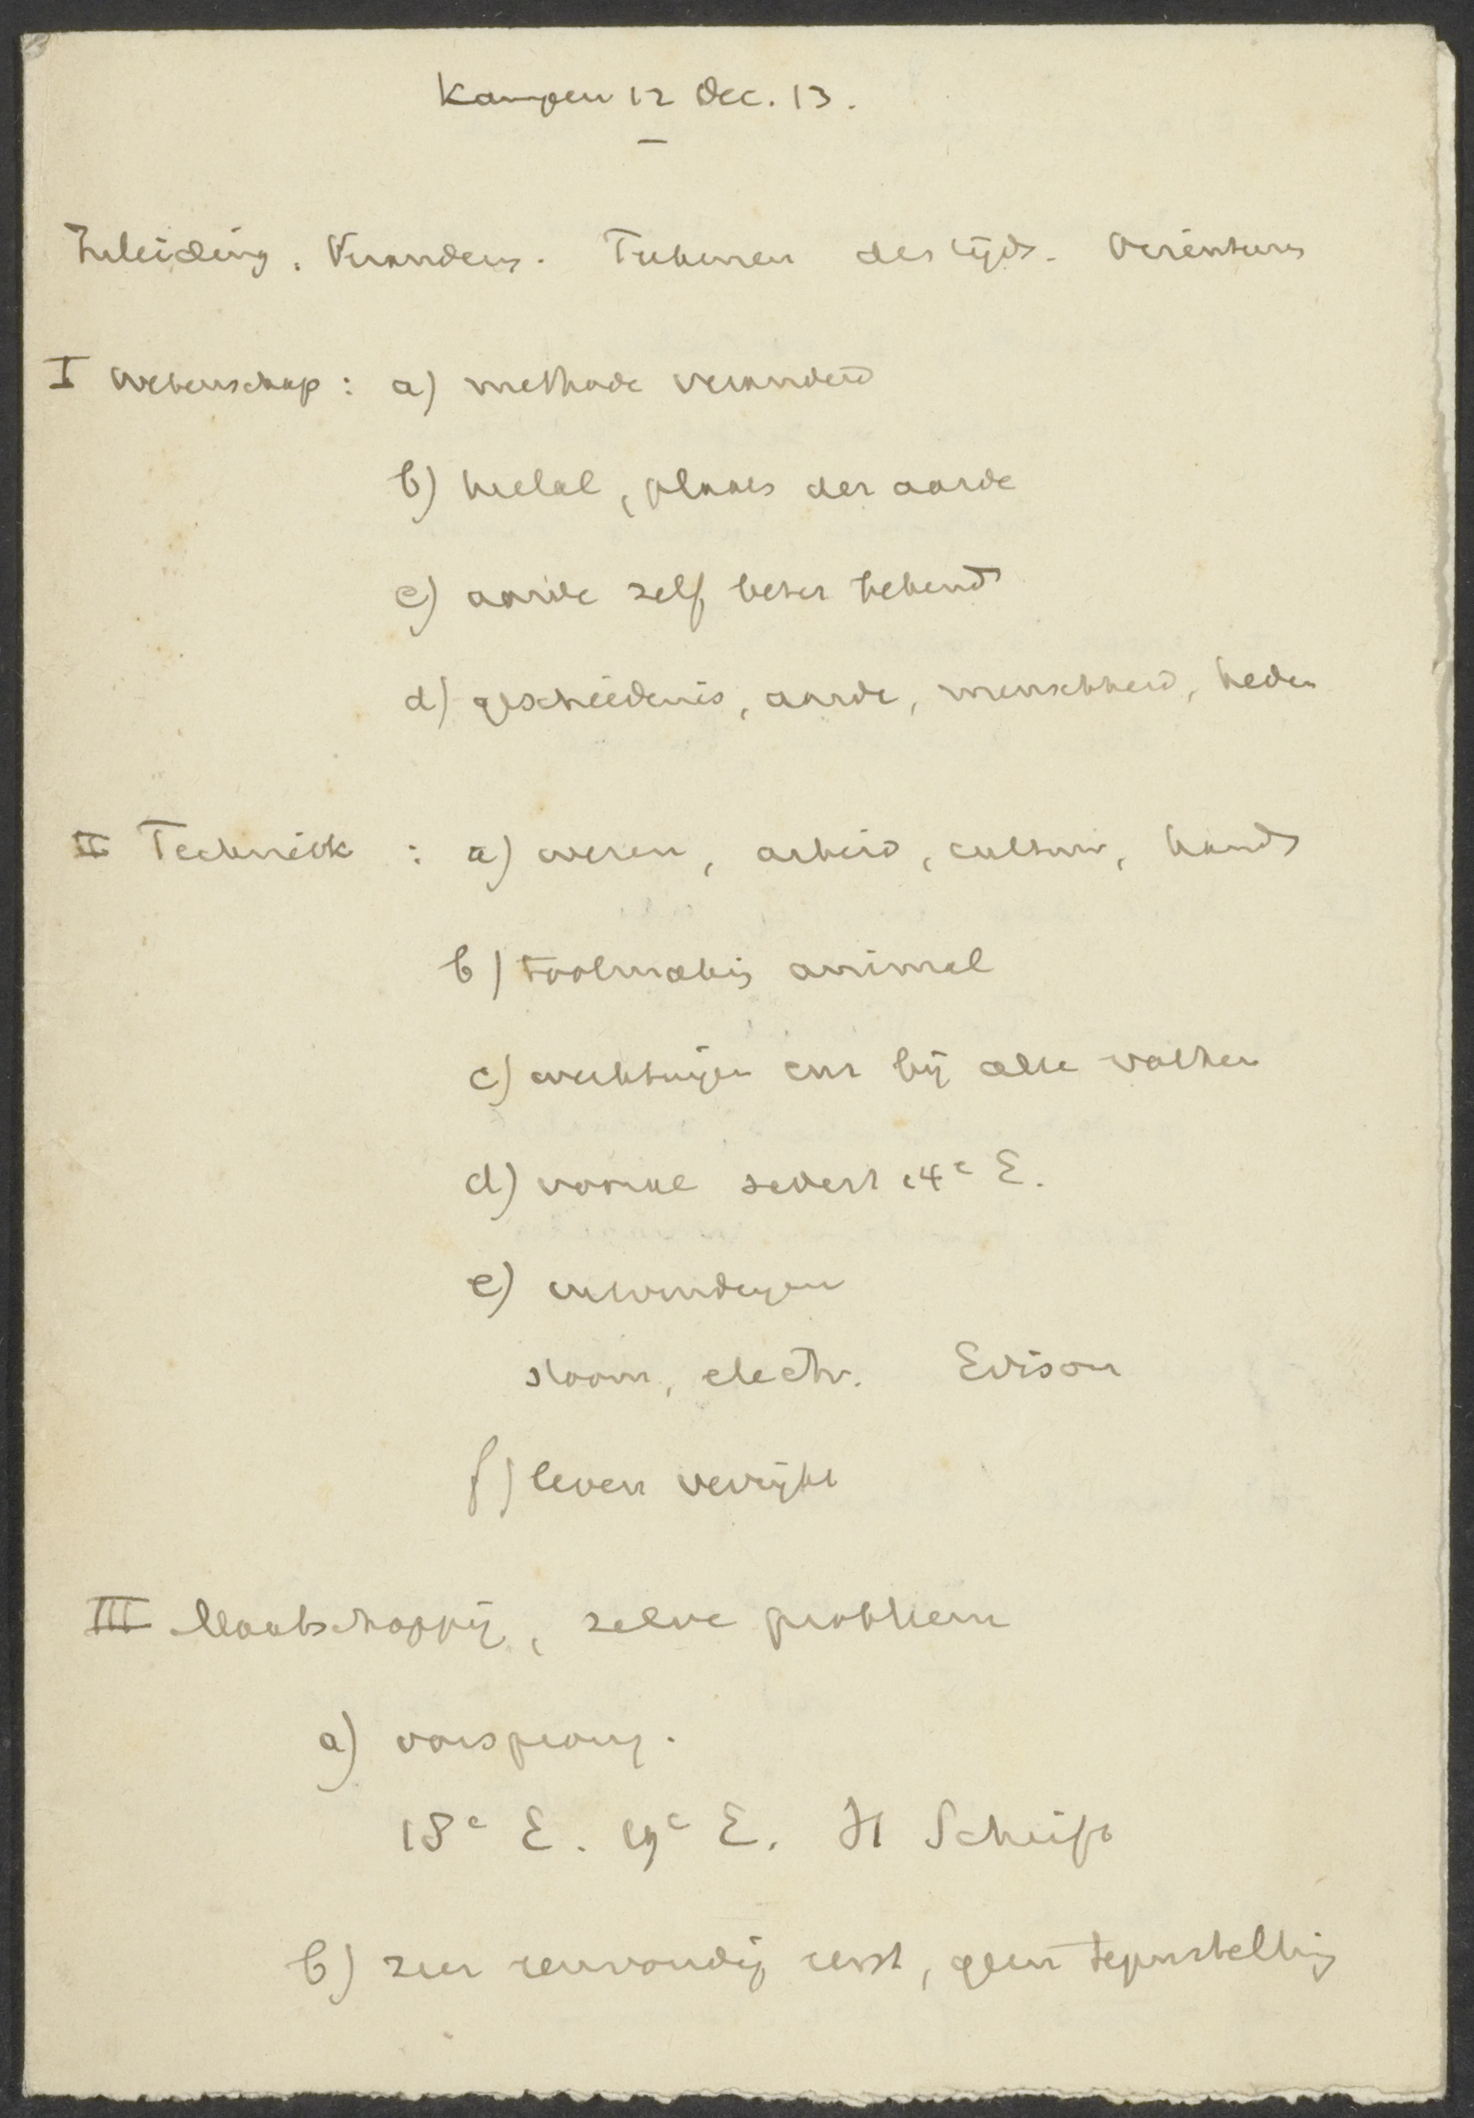 Kampen 12 Dec. 13.
Inleiding. Veranderg. Teekenen des tijds. Orienteering
I Wetenschap: a) methode veranderd
b) heelal, plaats der aarde
c) aarde zelf beter bekend
d) geschiedenis, aarde, menschheid, heden
II Techniek : a) wezen, arbeid, cultuur, hand
b) toolmaking animal
c) werktuigen enz bij alle volken
d) vooral sedert 14e E.
e) uitvindingen
stoom, electr. Edison
f) leven verrijkt
III Maatschappij, zelve probleem
a) oorsprong.
18e E. 19e E. H Schrift
b) zeer eenvoudig eerst, geen tegenstelling